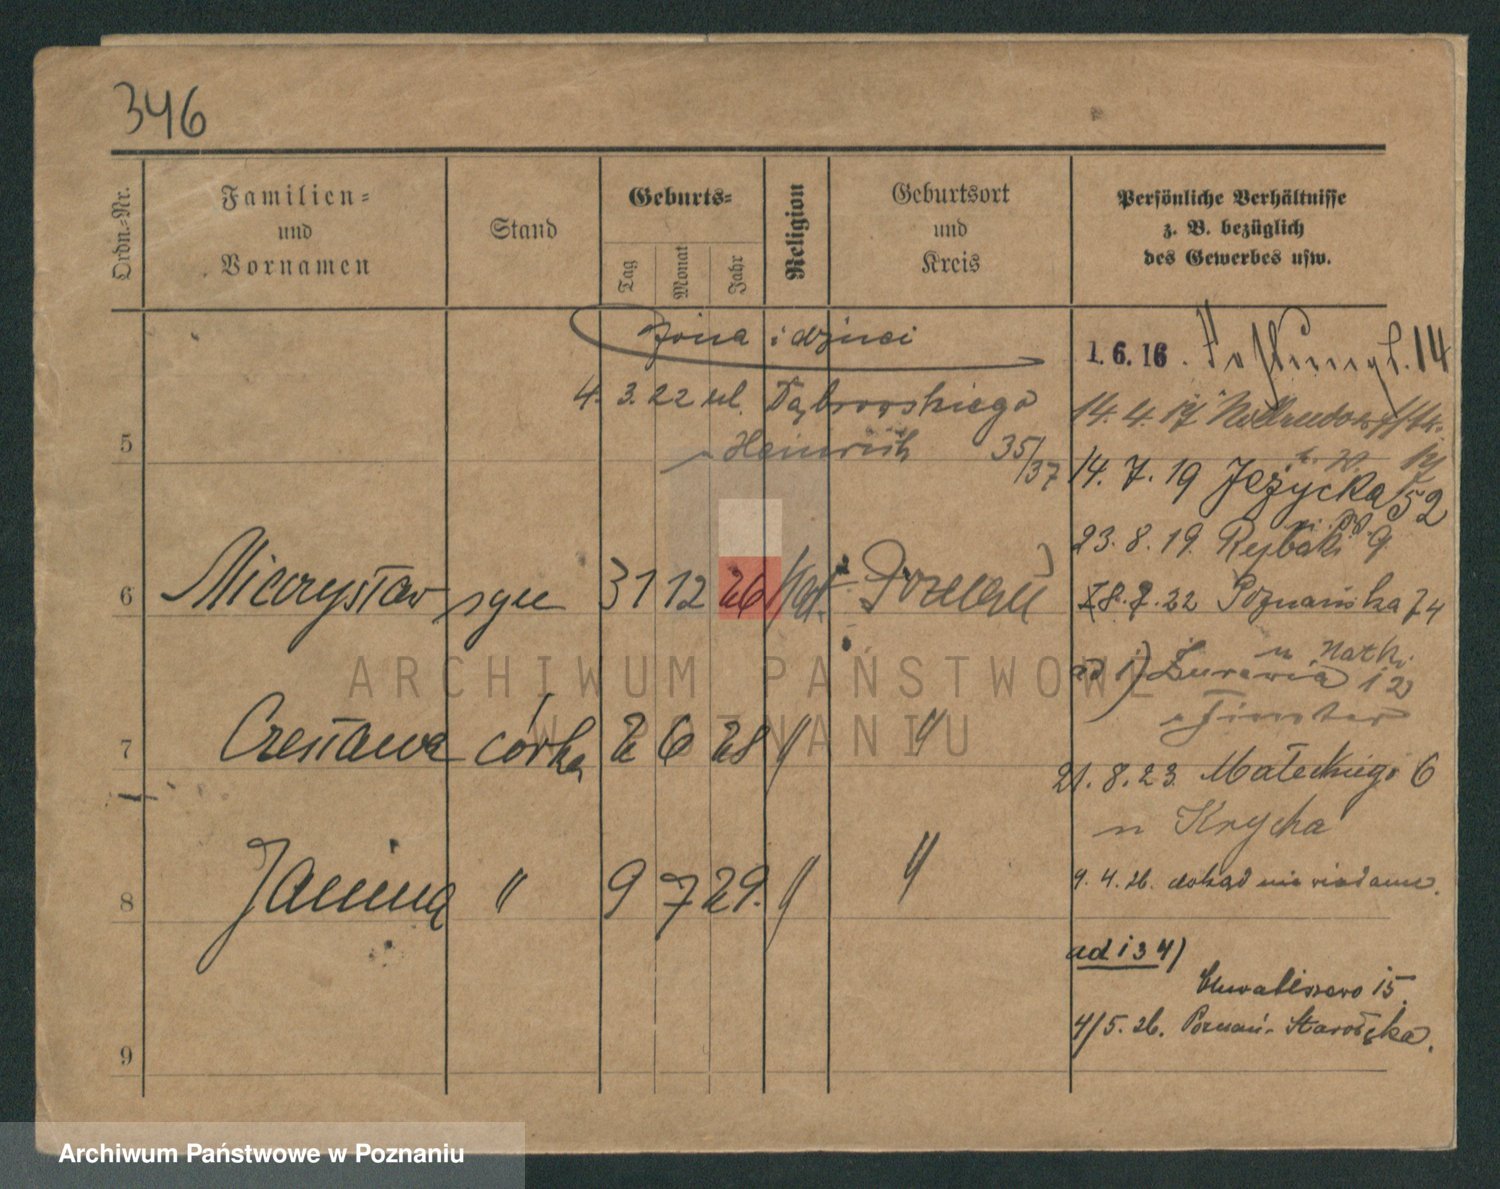 346
Ordn.-Nr.
Familien-
und
Vornamen
Stand
Geburts-
Tag
Monat
Jahr
Religion
Geburtsort
und
Kreis
Persönliche Verhältnisse
z. B. bezüglich
des Gewerbes usw.
żona i dzieci
4. 3. 22 ul. Dąbrowskiego
Heinrich 35/37
5
6 Mieczysław syn 31 12 26 kat. Poznań
7 Czesława córka 2 6 28 " "
8 Janina " 9 7 29. " "
9
1.6.16. 14
14. 4. 17
14. 7. 19 Jeżycka 52
23. 8. 19. Rybaki 9
28. 7. 22 Poznańska 74
ad 1) Żurawia 12
21. 8. 23. Małeckiego 6
u Krycha
9. 4. 26. dokąd nie wiadomo.
ad 1 3 4)
Chwaliszewo 15.
4/5. 26. Poznań-Starołęka.
ARCHIWUM PAŃSTWOWE
W POZNANIU
Archiwum Państwowe w Poznaniu